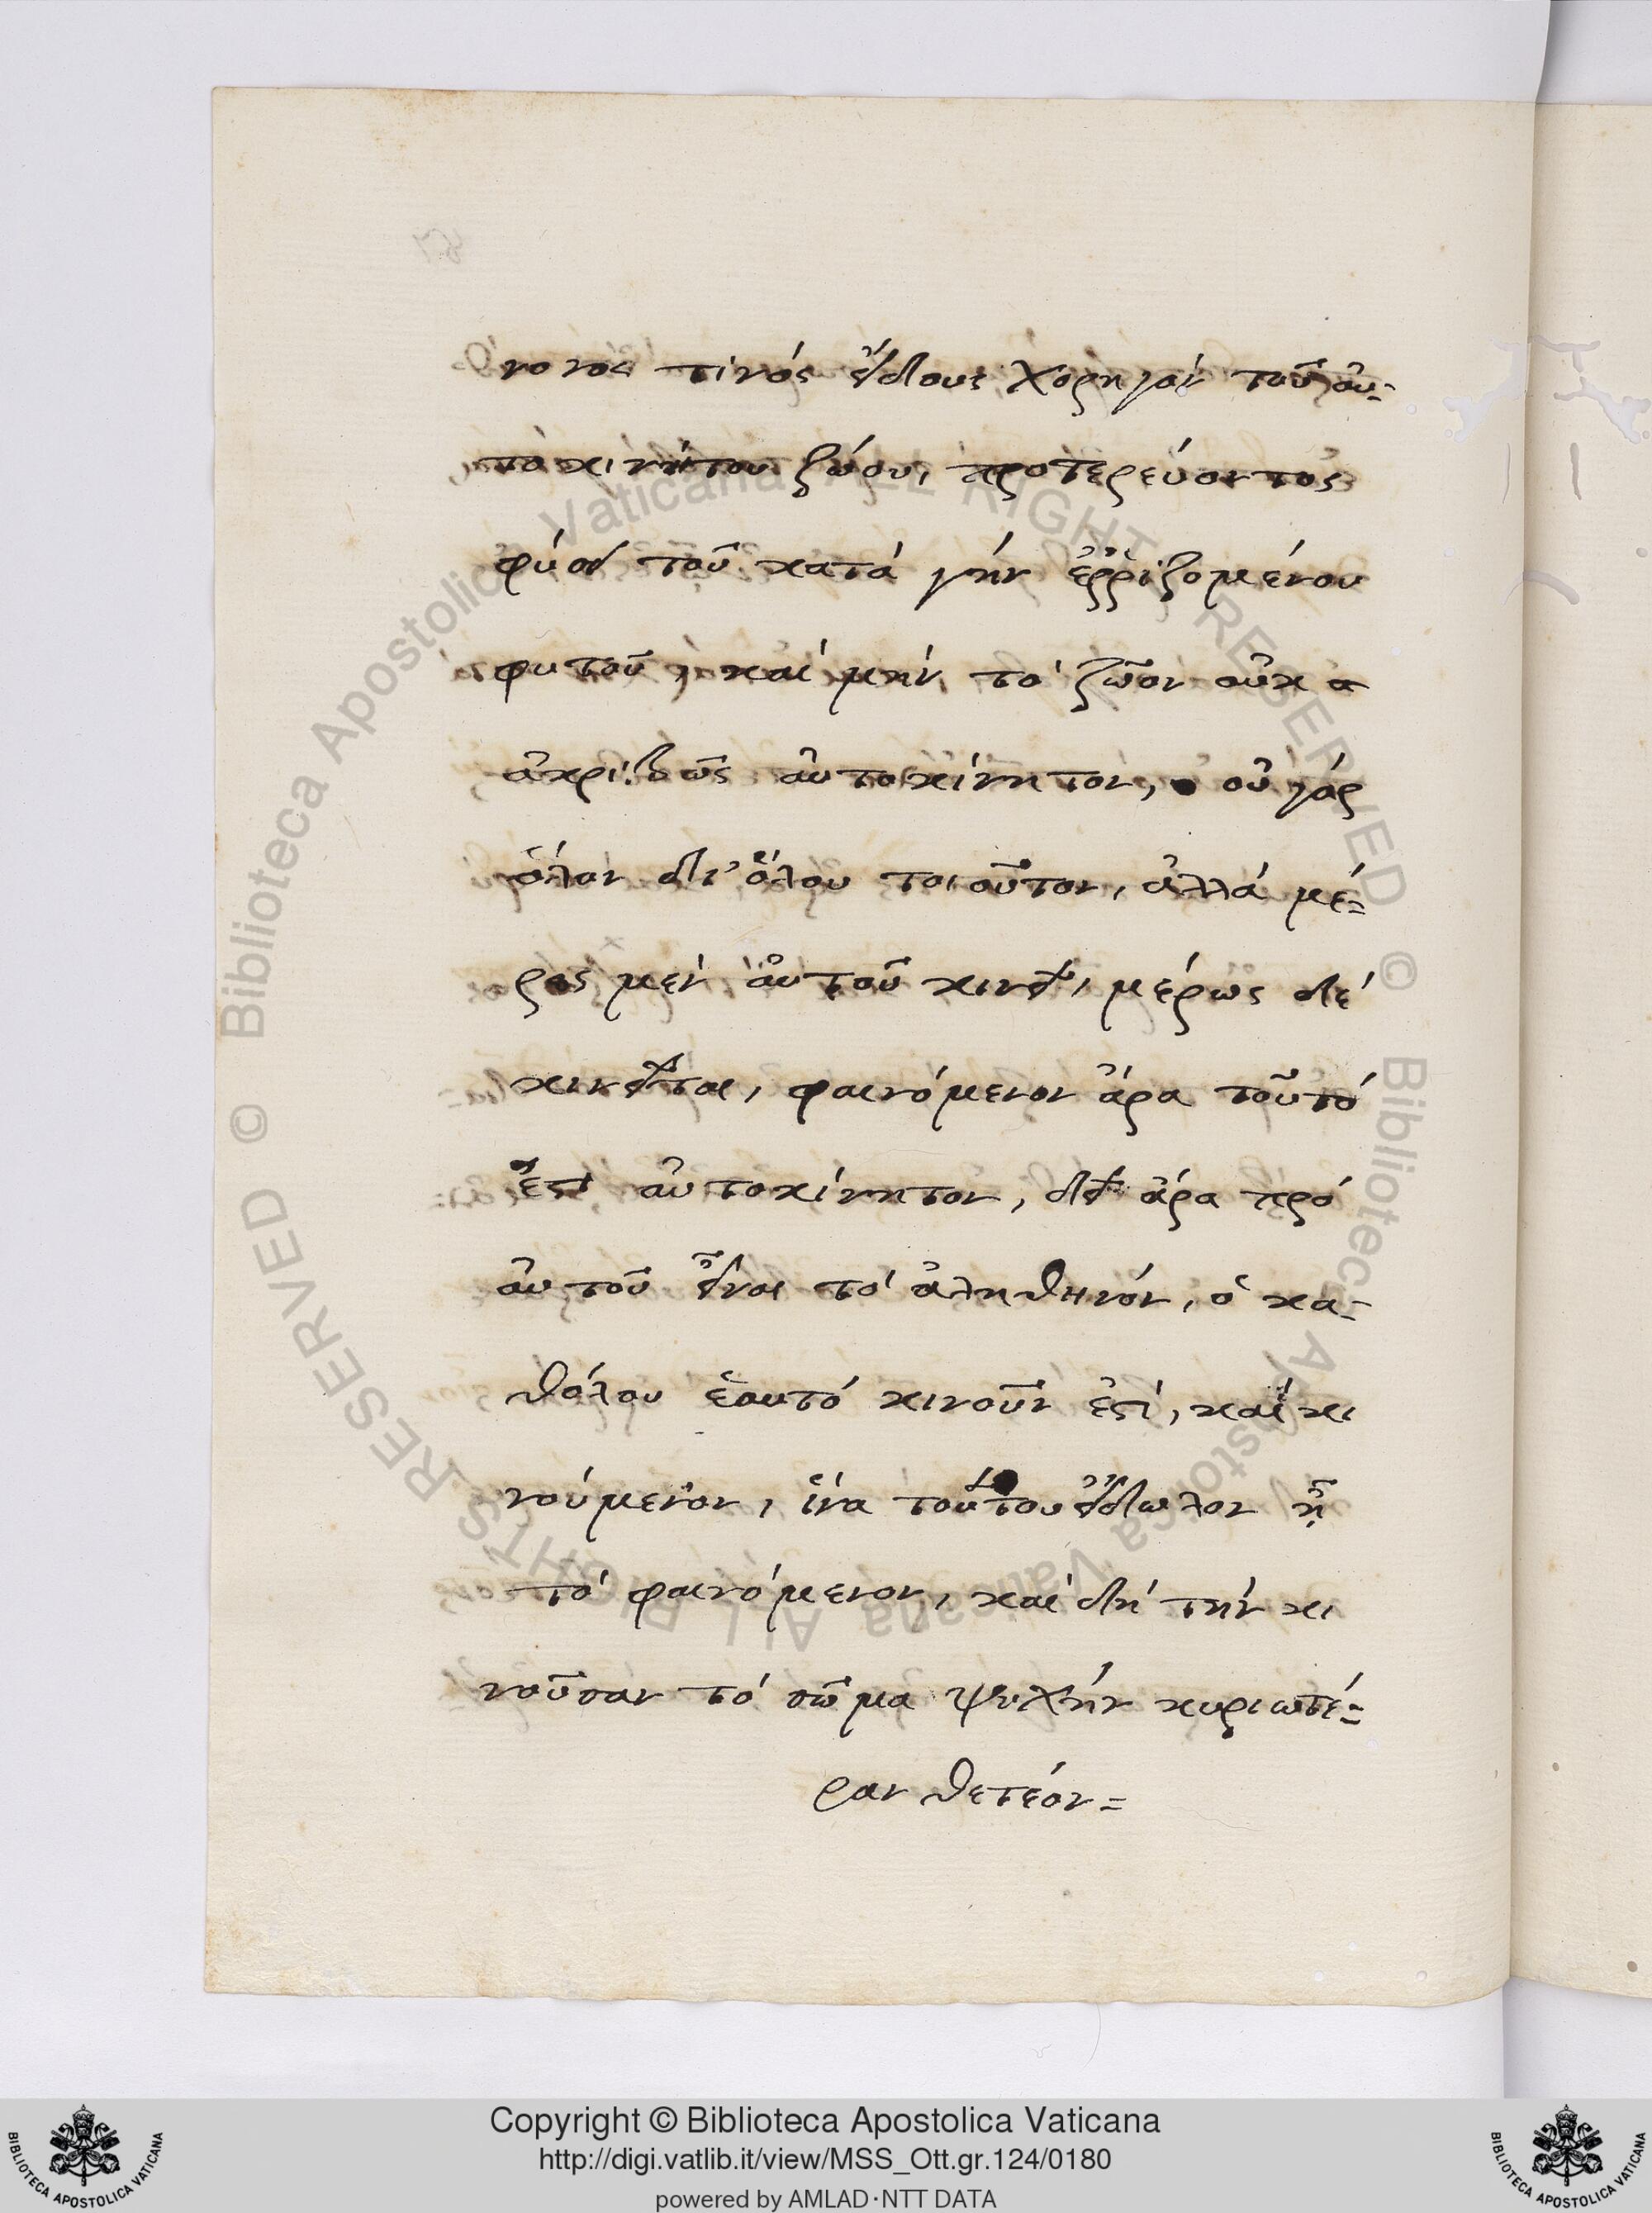 νονος τινός εἴδους χορηγόν τοῦ αὐ-
τοκινήτου ζώου, προτερεύοντος
φύσει τοῦ κατά γήν ἐῤῥιζομένου
φυτοῦ, καί μήν τό ζῶον οὐκ α
ἀκριβῶς αὐτοκίνητον, οὐ γάρ
ὅλον δι' ὅλου τοιοῦτον, ἀλλά μέ=
ρος μέν αὐτοῦ κινεῖ, μέρως δέ
κινεῖται, φαινόμενον ἄρα τοῦτό
ἐστί αὐτοκίνητον, δεῖ ἄρα πρό
αὐτοῦ εἶναι τό ἀληθινόν, ὁ κα-
θόλου ἑαυτό κινοῦν ἐστί, καί κι
νούμενον, ἵνα τούτου εἴδωλον ῇ
τό φαινόμενον, καί δή τήν κι
νοῦσαν τό σῶμα ψυχήν κυριωτέ=
ραν θετέον=
Copyright © Biblioteca Apostolica Vaticana
http://digi.vatlib.it/view/MSS_Ott.gr.124/0180
powered by AMLAD·NTT DATA
BIBLIOTECA APOSTOLICA VATICANA
BIBLIOTECA APOSTOLICA VATICANA
© Biblioteca Apostolica Vaticana ALL RIGHTS RESERVED © Biblioteca Apostolica Vaticana ALL RIGHTS RESERVED